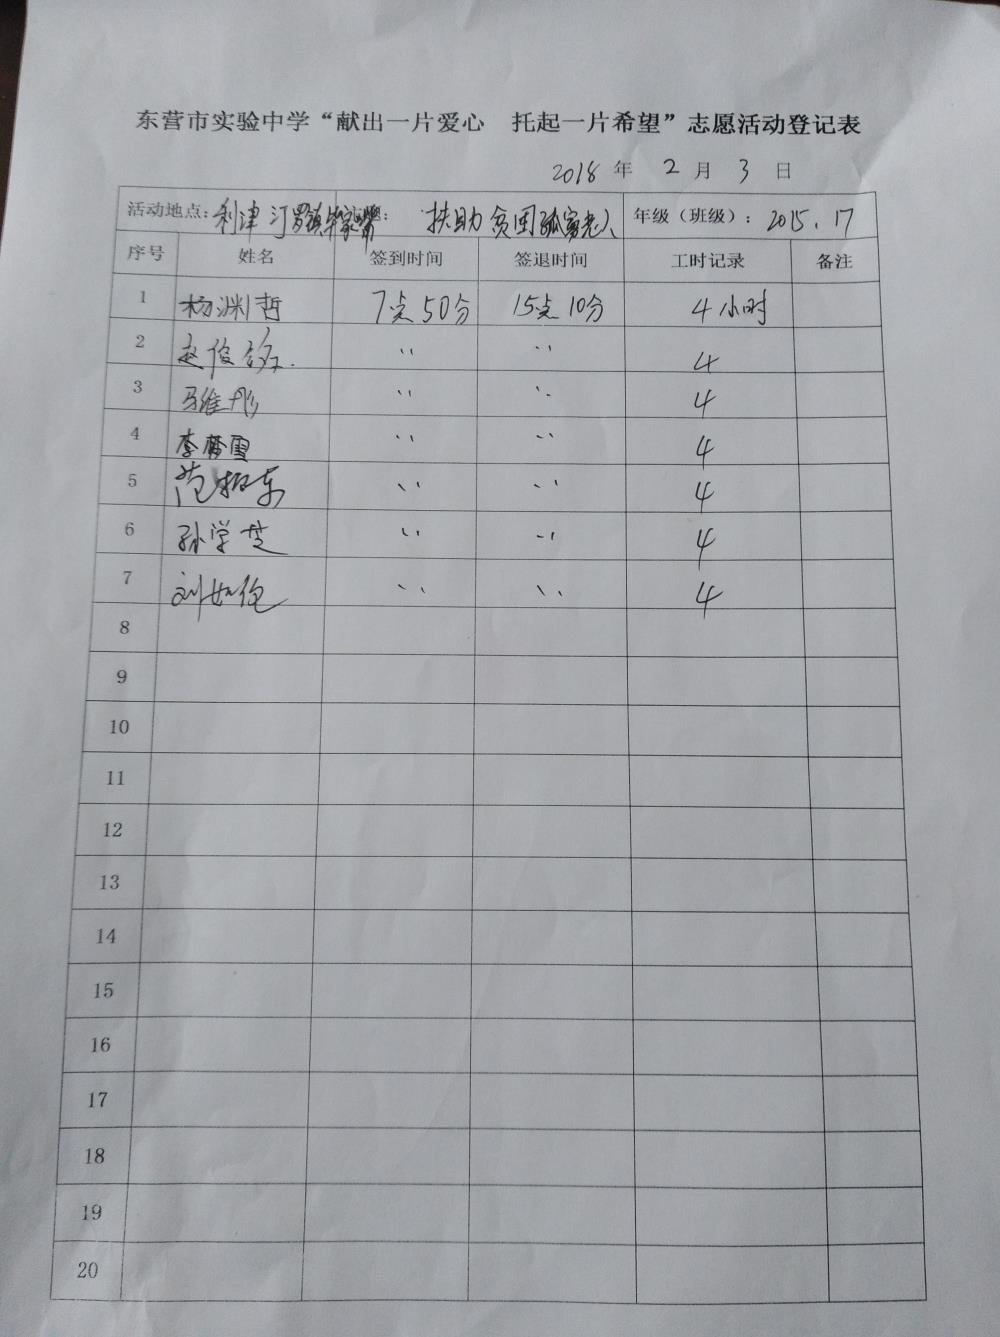 东营市实验中学“献出一片爱心 托起一片希望”志愿活动登记表
2018 年 2 月 3 日
活动地点: 利津 汀罗镇毕家嘴 : 扶助 贫困孤寡老人 年级（班级）: 2015.17
序号 姓名 签到时间 签退时间 工时记录 备注
1 杨渊哲 7点50分 15点10分 4小时
2 赵俊 〃 〃 4
3 马维彤 〃 〃 4
4 李雪 〃 〃 4
5 范东 〃 〃 4
6 孙学芝 〃 〃 4
7 刘如 〃 〃 4
8
9
10
11
12
13
14
15
16
17
18
19
20